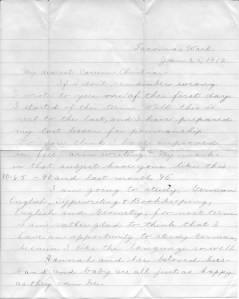 Tacoma, Wash.
Jan. 25, 1912
My dearest Cousin Christina:
If I don't remember wrong
wrote to you one of the first days
I started of this term. Well this is
next to the last, and I have prepared
my last lesson for penmanship
you think I have improved
in my writing. My marks
in that subject have been like this
90-95-90 and last month 95
I am going to study German
English, Typewriting & Bookkeeping,
English and Geometry, for next term
I am rather glad to think that I
have an opportunity to study German
because I like the language so well
Hannah and her beloved hus-
band and baby are all just as happy
as they can be.